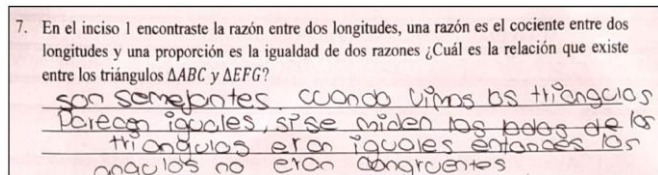 7. En el inciso 1 encontraste la razón entre dos longitudes, una razón es el cociente entre dos
longitudes y una proporción es la igualdad de dos razones ¿Cuál es la relación que existe
entre los triángulos ΔABC y ΔEFG?
son semejantes. cuando vimos los triangulos
Parecen iguales, si se miden los lados de los
triangulos eran iguales entonces los
angulos no eran congruentes